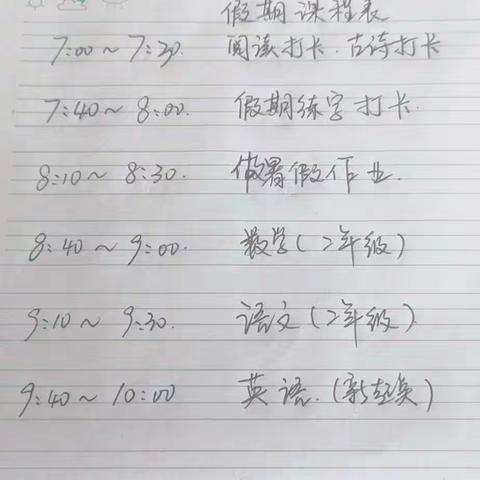 假期课程表
7:00~7:30. 阅读打卡.古诗打卡
7:40~8:00. 假期练字打卡.
8:10~8:30. 做暑假作业.
8:40~9:00. 数学(2年级)
9:10~9:30. 语文(2年级)
9:40~10:00 英语.(新起)